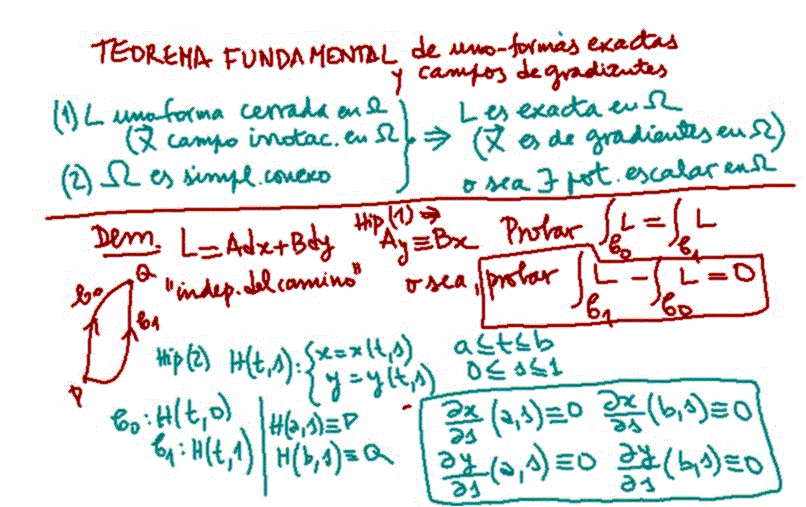 TEOREMA FUNDAMENTAL de uno-formas exactas
y campos de gradientes
(1) L uno-forma cerrada en Ω
(X⃗ campo irrotac. en Ω)
(2) Ω es simpl. conexo
⇒ L es exacta en Ω
(X⃗ es de gradientes en Ω)
o sea ∃ pot. escalar en Ω
Dem. L = Adx + Bdy Hip(1) → Ay ≡ Bx Probar ∫_𝒞0 L = ∫_𝒞1 L
"indep. del camino" o sea, probar ∫_𝒞1 L − ∫_𝒞0 L = 0
𝒞0 Q
𝒞1
P
Hip(2) H(t,s): { x = x(t,s) a ≤ t ≤ b
y = y(t,s) 0 ≤ s ≤ 1
𝒞0: H(t,0) H(a,s) ≡ P
𝒞1: H(t,1) H(b,s) ≡ Q
∂x/∂s (a,s) ≡ 0 ∂x/∂s (b,s) ≡ 0
∂y/∂s (a,s) ≡ 0 ∂y/∂s (b,s) ≡ 0